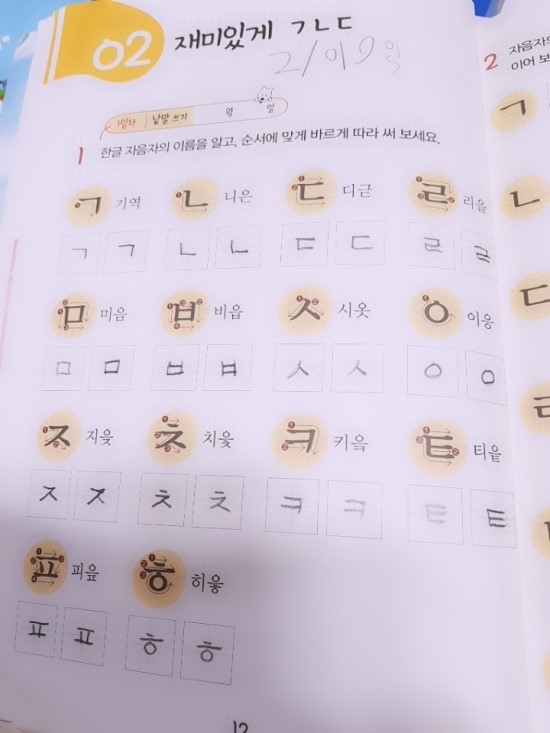 02 재미있게 ㄱㄴㄷ
2/이9일
1일차 낱말 쓰기 월 일
1 한글 자음자의 이름을 알고, 순서에 맞게 바르게 따라 써 보세요.
ㄱ 기역 ㄴ 니은 ㄷ 디귿 ㄹ 리을
ㄱ ㄱ ㄴ ㄴ ㄷ ㄷ ㄹ ㄹ
ㅁ 미음 ㅂ 비읍 ㅅ 시옷 ㅇ 이응
ㅁ ㅁ ㅂ ㅂ ㅅ ㅅ ㅇ ㅇ
ㅈ 지읒 ㅊ 치읓 ㅋ 키읔 ㅌ 티읕
ㅈ ㅈ ㅊ ㅊ ㅋ ㅋ ㅌ ㅌ
ㅍ 피읖 ㅎ 히읗
ㅍ ㅍ ㅎ ㅎ
12
2 자음자의
이어 보
ㄱ
ㄴ
ㄷ
ㄹ